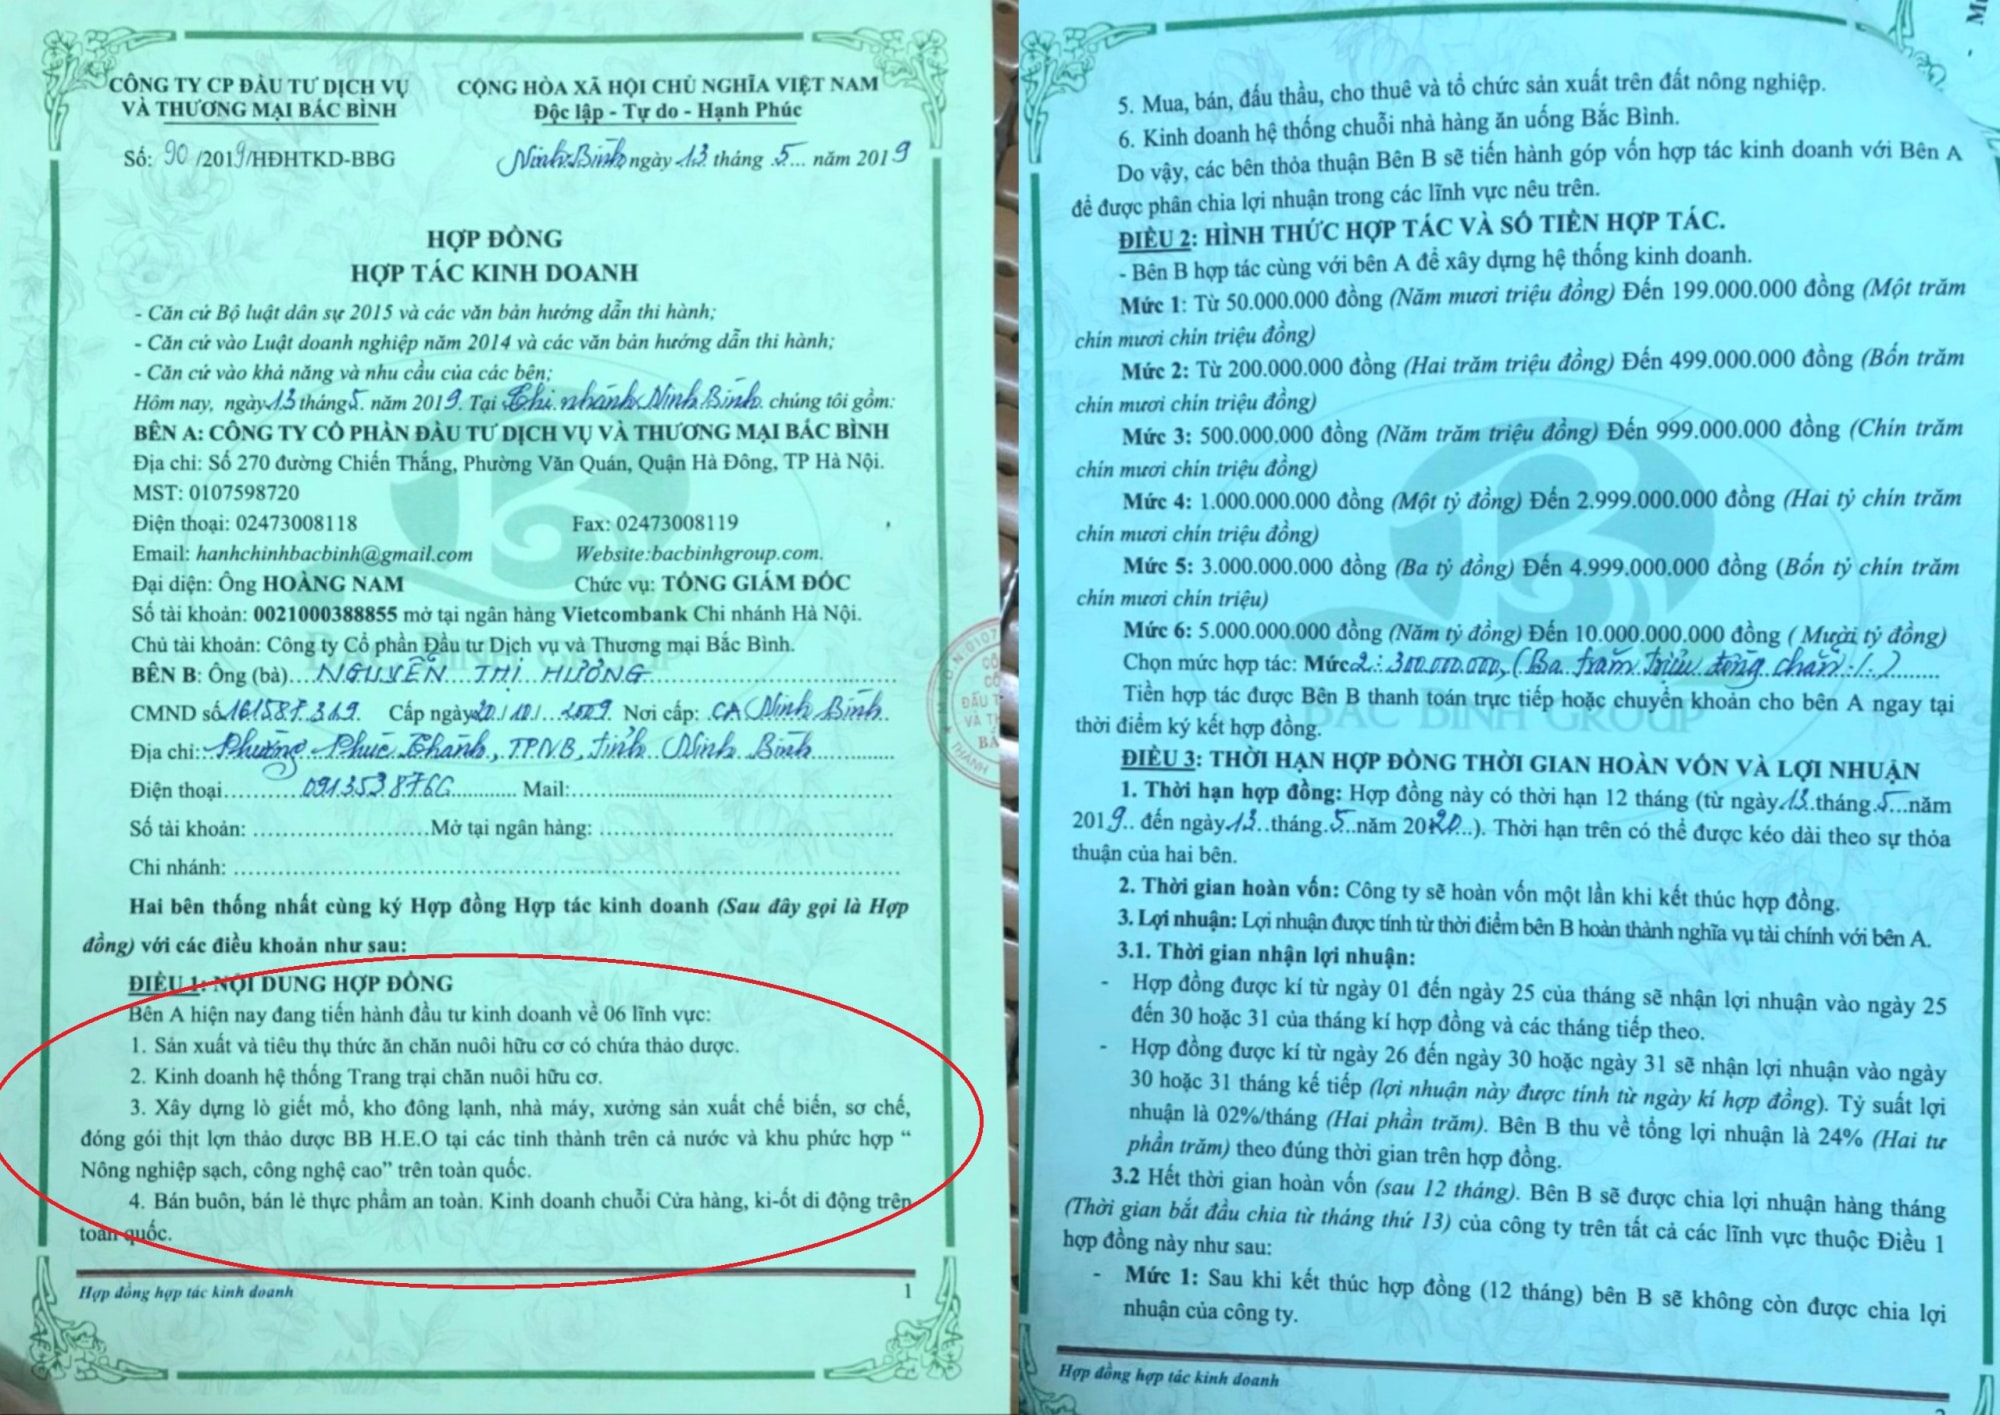 CÔNG TY CP ĐẦU TƯ DỊCH VỤ
VÀ THƯƠNG MẠI BẮC BÌNH
CỘNG HÒA XÃ HỘI CHỦ NGHĨA VIỆT NAM
Độc lập - Tự do - Hạnh Phúc
Số: 90/2019/HĐHTKD-BBG
Ninh Bình ngày 13 tháng .5... năm 2019
HỢP ĐỒNG
HỢP TÁC KINH DOANH
- Căn cứ Bộ luật dân sự 2015 và các văn bản hướng dẫn thi hành;
- Căn cứ vào Luật doanh nghiệp năm 2014 và các văn bản hướng dẫn thi hành;
- Căn cứ vào khả năng và nhu cầu của các bên;
Hôm nay, ngày 13 tháng 5. năm 2019. Tại Chi nhánh Ninh Bình. chúng tôi gồm:
BÊN A: CÔNG TY CỔ PHẦN ĐẦU TƯ DỊCH VỤ VÀ THƯƠNG MẠI BẮC BÌNH
Địa chỉ: Số 270 đường Chiến Thắng, Phường Văn Quán, Quận Hà Đông, TP Hà Nội.
MST: 0107598720
Điện thoại: 02473008118 Fax: 02473008119
Email: hanhchinhbacbinh@gmail.com Website:bacbinhgroup.com.
Đại diện: Ông HOÀNG NAM Chức vụ: TỔNG GIÁM ĐỐC
Số tài khoản: 0021000388855 mở tại ngân hàng Vietcombank Chi nhánh Hà Nội.
Chủ tài khoản: Công ty Cổ phần Đầu tư Dịch vụ và Thương mại Bắc Bình.
BÊN B: Ông (bà)....NGUYỄN THỊ HƯỜNG
CMND số 161587319. Cấp ngày 20/10/...2009. Nơi cấp: CA Ninh Bình
Địa chỉ: Phường Phúc Thành, TP.N.B, tỉnh Ninh Bình
Điện thoại........0913538766............ Mail:
Số tài khoản: ........................Mở tại ngân hàng:
Chi nhánh:
Hai bên thống nhất cùng ký Hợp đồng Hợp tác kinh doanh (Sau đây gọi là Hợp
đồng) với các điều khoản như sau:
ĐIỀU 1: NỘI DUNG HỢP ĐỒNG
Bên A hiện nay đang tiến hành đầu tư kinh doanh về 06 lĩnh vực:
1. Sản xuất và tiêu thụ thức ăn chăn nuôi hữu cơ có chứa thảo dược.
2. Kinh doanh hệ thống Trang trại chăn nuôi hữu cơ.
3. Xây dựng lò giết mổ, kho đông lạnh, nhà máy, xưởng sản xuất chế biến, sơ chế,
đóng gói thịt lợn thảo dược BB H.E.O tại các tỉnh thành trên cả nước và khu phức hợp “
Nông nghiệp sạch, công nghệ cao” trên toàn quốc.
4. Bán buôn, bán lẻ thực phẩm an toàn. Kinh doanh chuỗi Cửa hàng, ki-ốt di động trên
toàn quốc.
Hợp đồng hợp tác kinh doanh 1
5. Mua, bán, đấu thầu, cho thuê và tổ chức sản xuất trên đất nông nghiệp.
6. Kinh doanh hệ thống chuỗi nhà hàng ăn uống Bắc Bình.
Do vậy, các bên thỏa thuận Bên B sẽ tiến hành góp vốn hợp tác kinh doanh với Bên A
để được phân chia lợi nhuận trong các lĩnh vực nêu trên.
ĐIỀU 2: HÌNH THỨC HỢP TÁC VÀ SỐ TIỀN HỢP TÁC.
- Bên B hợp tác cùng với bên A để xây dựng hệ thống kinh doanh.
Mức 1: Từ 50.000.000 đồng (Năm mươi triệu đồng) Đến 199.000.000 đồng (Một trăm
chín mươi chín triệu đồng)
Mức 2: Từ 200.000.000 đồng (Hai trăm triệu đồng) Đến 499.000.000 đồng (Bốn trăm
chín mươi chín triệu đồng)
Mức 3: 500.000.000 đồng (Năm trăm triệu đồng) Đến 999.000.000 đồng (Chín trăm
chín mươi chín triệu đồng)
Mức 4: 1.000.000.000 đồng (Một tỷ đồng) Đến 2.999.000.000 đồng (Hai tỷ chín trăm
chín mươi chín triệu đồng)
Mức 5: 3.000.000.000 đồng (Ba tỷ đồng) Đến 4.999.000.000 đồng (Bốn tỷ chín trăm
chín mươi chín triệu)
Mức 6: 5.000.000.000 đồng (Năm tỷ đồng) Đến 10.000.000.000 đồng ( Mười tỷ đồng)
Chọn mức hợp tác: Mức 2: 300.000.000, (Ba trăm triệu đồng chẵn./.)
Tiền hợp tác được Bên B thanh toán trực tiếp hoặc chuyển khoản cho bên A ngay tại
thời điểm ký kết hợp đồng.
ĐIỀU 3: THỜI HẠN HỢP ĐỒNG THỜI GIAN HOÀN VỐN VÀ LỢI NHUẬN
1. Thời hạn hợp đồng: Hợp đồng này có thời hạn 12 tháng (từ ngày 13.tháng.5...năm
2019.. đến ngày 13..tháng.5..năm 2020...). Thời hạn trên có thể được kéo dài theo sự thỏa
thuận của hai bên.
2. Thời gian hoàn vốn: Công ty sẽ hoàn vốn một lần khi kết thúc hợp đồng.
3. Lợi nhuận: Lợi nhuận được tính từ thời điểm bên B hoàn thành nghĩa vụ tài chính với bên A.
3.1. Thời gian nhận lợi nhuận:
- Hợp đồng được kí từ ngày 01 đến ngày 25 của tháng sẽ nhận lợi nhuận vào ngày 25
đến 30 hoặc 31 của tháng kí hợp đồng và các tháng tiếp theo.
- Hợp đồng được kí từ ngày 26 đến ngày 30 hoặc ngày 31 sẽ nhận lợi nhuận vào ngày
30 hoặc 31 tháng kế tiếp (lợi nhuận này được tính từ ngày kí hợp đồng). Tỷ suất lợi
nhuận là 02%/tháng (Hai phần trăm). Bên B thu về tổng lợi nhuận là 24% (Hai tư
phần trăm) theo đúng thời gian trên hợp đồng.
3.2 Hết thời gian hoàn vốn (sau 12 tháng). Bên B sẽ được chia lợi nhuận hàng tháng
(Thời gian bắt đầu chia từ tháng thứ 13) của công ty trên tất cả các lĩnh vực thuộc Điều 1
hợp đồng này như sau:
- Mức 1: Sau khi kết thúc hợp đồng (12 tháng) bên B sẽ không còn được chia lợi
nhuận của công ty.
Hợp đồng hợp tác kinh doanh